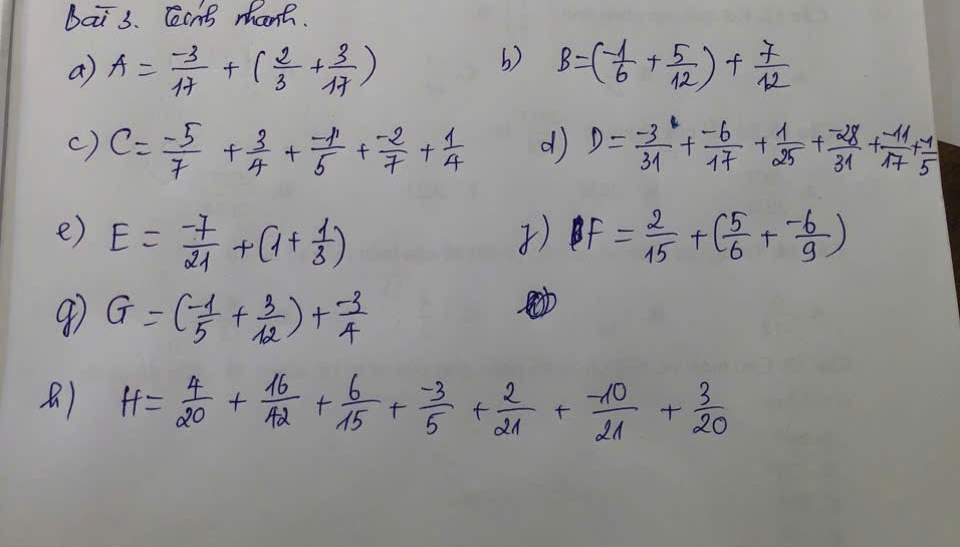 Bài 3. Tính nhanh.
a) A = -3/17 + (2/3 + 3/17) b) B = (-1/6 + 5/12) + 7/12
c) C = -5/7 + 3/4 + -1/5 + -2/7 + 1/4 d) D = -3/31 + -6/17 + 1/25 + -28/31 + -11/17 + -1/5
e) E = -7/21 + (1 + 1/3) f) F = 2/15 + (5/6 + -6/9)
g) G = (-1/5 + 3/12) + -3/4
h) H = 4/20 + 16/42 + 6/15 + -3/5 + 2/21 + -10/21 + 3/20